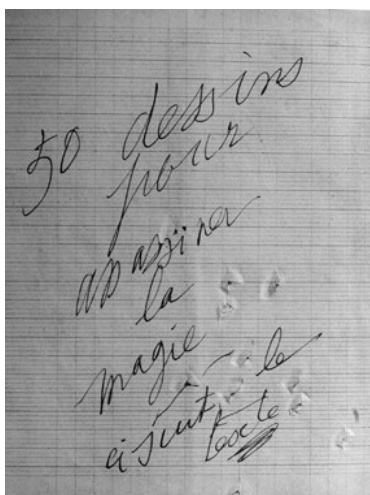 50 dessins
pour
assassiner
la
magie
ci suit le
texte